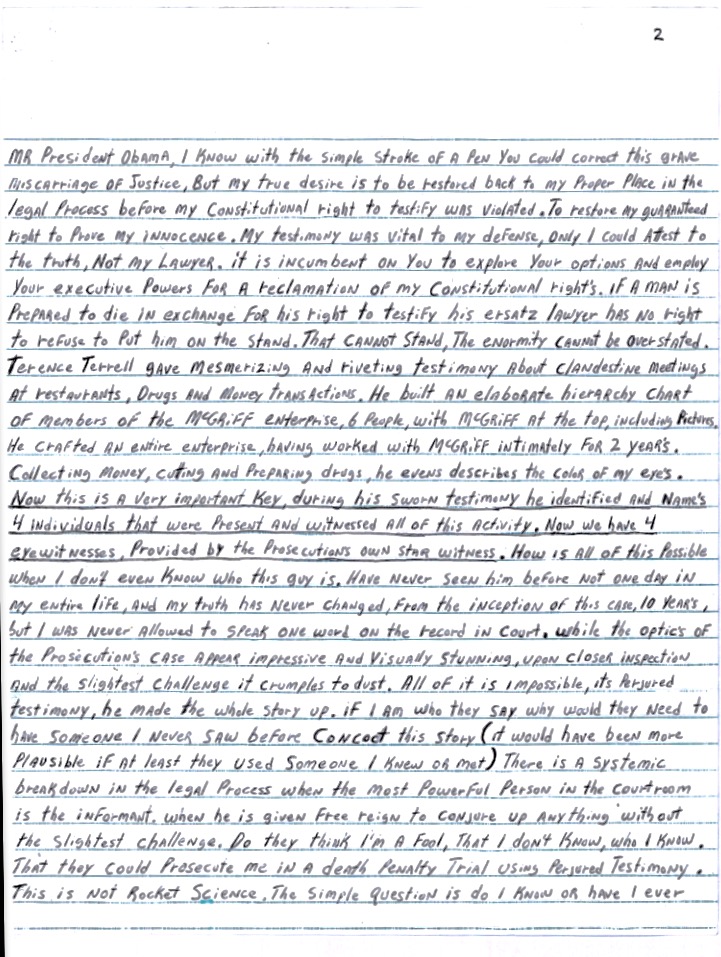 2
MR President Obama, I Know with the simple stroke of A Pen You could correct this grave
miscarriage of Justice, But my true desire is to be restored back to my Proper Place in the
legal Process before my Constitutional right to testify was violated. To restore my guaranteed
right to Prove my innocence. My testimony was vital to my defense, only I could Attest to
the truth, Not my Lawyer. it is incumbent on You to explore Your options And employ
Your executive Powers for A reclamation of my Constitutional right's. If A man is
Prepared to die in exchange for his right to testify his ersatz lawyer has no right
to refuse to Put him on the stand. That cannot stand, The enormity cannot be overstated.
Terence Terrell gave Mesmerizing And riveting testimony About clandestine meetings
At restaurants, Drugs And Money transActions. He built An elaborate hierarchy chart
of members of the McGriff enterprise, 6 People, with McGriff At the top, including Pictures.
He crafted An entire enterprise, having worked with McGriff intimately for 2 year's.
Collecting Money, cutting And Preparing drugs, he evens describes the color of my eye's.
Now this is A very important Key, during his sworn testimony he identified And Name's
4 individuals that were Present And witnessed All of this Activity. Now we have 4
eyewitnesses, Provided by the Prosecutions own star witness. How is All of this Possible
when I don't even Know who this guy is. Have never seen him before not one day in
my entire life, And my truth has never changed, From the inception of this case, 10 Year's,
but I was never Allowed to speak one word on the record in Court. while the optics of
the Prosecution's case Appear impressive And visually stunning, upon closer inspection
And the slightest challenge it crumples to dust. All of it is impossible, its Perjured
testimony, he made the whole story up. if I Am who they say why would they Need to
have someone I never saw before Concoct this story (it would have been more
Plausible if At least they used someone I Knew or met) There is A systemic
breakdown in the legal Process when the most Powerful Person in the Courtroom
is the informant. when he is given Free reign to conjure up Anything without
the slightest challenge. Do they think I'm A Fool, That I don't Know, who I Know.
That they could Prosecute me in A death Penalty Trial using Perjured Testimony.
This is not Rocket Science, The simple question is do I Know or have I ever